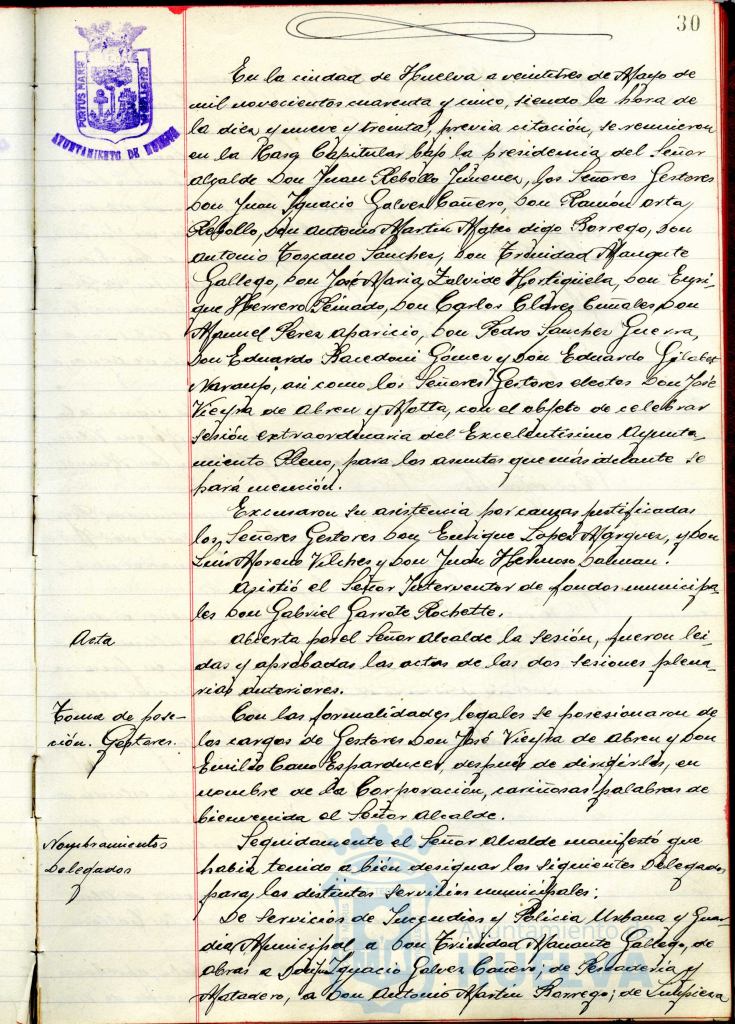 30
PORTUS MARIS
AYUNTAMIENTO DE HUELVA
En la ciudad de Huelva a veintitres de Mayo de
mil novecientos cuarenta y cinco, siendo la hora de
la diez y nueve y treinta, previa citación, se reunieron
en la Casa Capitular bajo la presidencia del Señor
Alcalde Don Juan Rebollo Jimenez, los Señores Gestores
Don Juan Ignacio Galvez Cañero, Don Ramón Orta
Rebollo, Don Antonio Martin Mateo digo Borrego, Don
Antonio Toscano Sanches, Don Trinidad Manzute
Gallego, Don José Maria Zalvide Hortigüela, Don Enri-
que Herrero Peinado, Don Carlos Cuñales Don
Manuel Perez Aparicio, Don Pedro Sanchez Guerra,
Don Eduardo Racedoni Gómez y Don Eduardo Gilabet
Naranjo, asi como los Señores Gestores electos Don José
Vieyra de Abreu y Motta, con el objeto de celebrar
sesión extraordinaria del Excelentisimo Ayunta-
miento Pleno, para los asuntos que más adelante se
hará mención.
Excusaron su asistencia por causas justificadas
los Señores Gestores Don Enrique Lopez Marquez, y Don
Luis Moreno Vilches y Don Juan Hermoso
Asistió el Señor Interventor de fondos municipa-
les Don Gabriel Garrote Rochette.
Acta
Abierta por el Señor Alcalde la Sesión, fueron lei-
das y aprobadas las actas de las dos sesiones plena-
rias anteriores.
Toma de pose-
ción. Gestores.
Con las formalidades legales se posesionaron de
los cargos de Gestores Don José Vieyra de Abreu y Don
Emilio Cano Esparducer, después de dirigirles, en
nombre de la Corporación, cariñosas palabras de
bienvenida el Señor Alcalde.
Nombramientos
Delegados
Seguidamente el Señor Alcalde manifestó que
habia tenido a bién designar los siguientes Delegados
para los distintos servicios municipales:
De Servicios de Incendios y Policia Urbana y Guar-
dia Municipal a Don Trinidad Manante Gallego, de
Obras a Don Juan Ignacio Galvez Cañero; de Pescaderia y
Matadero, a Don Antonio Martin Borrego; de Limpieza
Ayuntamiento de
HUELVA